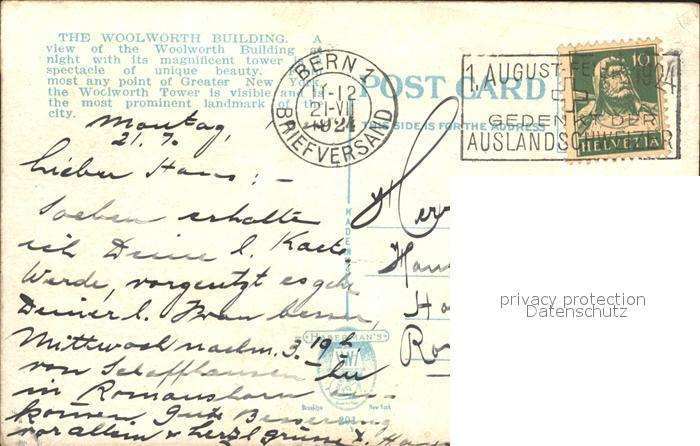 THE WOOLWORTH BUILDING. A
view of the Woolworth Building at
night with its magnificent tower a
spectacle of unique beauty.
most any point of Greater New York
the Woolworth Tower is visible and
the most prominent landmark of the
city.
BERN 1
11-12
21.VII
1924
BRIEFVERSAND
POST CARD
THIS SIDE IS FOR THE ADDRESS
1. AUGUST-FEIER 1924
GEDENKT DER
AUSLANDSCHWEIZER
10
HELVETIA
Montag,
21. 7.
Lieber Hans; -
Soeben erhalte
ich Deine l. Karte.
Werde, vorgesetzt es geht
Deiner l. Frau besser,
Mittwoch nachm. 3.19 h.
von Schaffhausen
in Romanshorn
kommen. Gute Besserung
vor allem & herzl. grüsse
Herr
Ro
HABERMAN'S
Brooklyn New York
203
privacy protection
Datenschutz